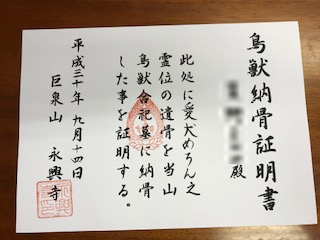 鳥獣納骨証明書
殿
此処に愛犬めちん之
霊位の遺骨を当山
鳥獣合祀墓に納骨
した事を証明する。
平成三十年九月十四日
巨泉山 永興寺